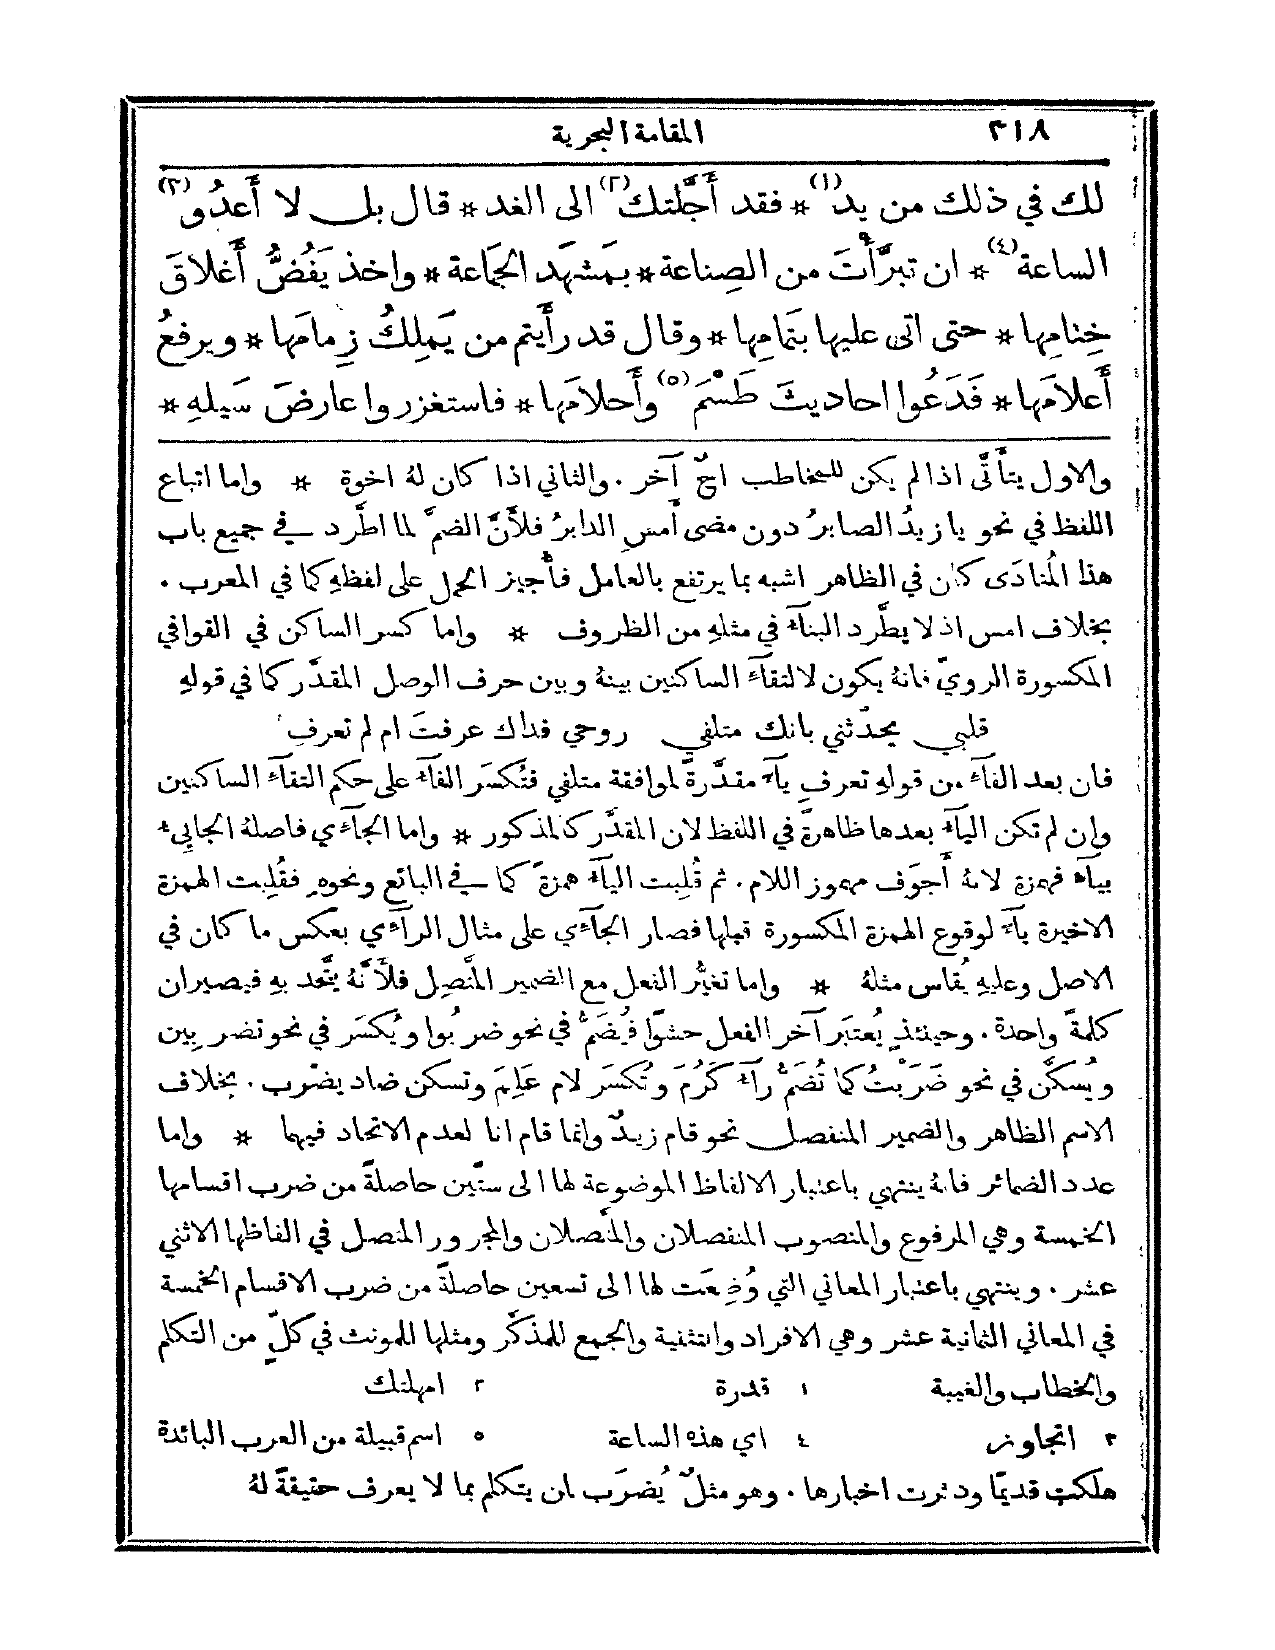 ٣١٨ المقامة البحرية
لك في ذلك من يدٍ(١) * فقد أَجَّلتك(٢) الى الغد * قال بل لا أَعدُو(٣)
الساعة(٤) * ان تبرَّأتَ من الصِناعة * بمَشهَد الجَماعة * واخذ يَفُضُّ أَغلاقَ
خِتامِها * حتى اتى عليها بتَمامِها * وقال قد رأَيتم من يَملِكُ زِمامَها * ويرفعُ
أَعلامَها * فَدَعُوا احاديثَ طَسْمٍ(٥) وأَحلامَها * فاستغزروا عارضَ سَيلهِ *
والاول يتأَتَّى اذا لم يكن للمخاطب اخٌ آخر . والثاني اذا كان لهُ اخوة * واما اتباع
اللفظ في نحو يا زيدُ الصابرُ دون مضى أَمسِ الدابرُ فلأَنَّ الضمَّ لما اطَّرد في جميع باب
هذا المُنادَى كان في الظاهر اشبه بما يرتفع بالعامل فأُجيز الحمل على لفظهِ كما في المعرب .
بخلاف امس اذ لا يطَّرد البنآءُ في مثلهِ من الظروف * واما كسر الساكن في القوافي
المكسورة الرويّ فانهُ يكون لالتقآءِ الساكنين بينهُ وبين حرف الوصل المقدَّر كما في قولهِ
قلبي يحدّثني بانك متلفي روحي فداك عرفتَ ام لم تعرفِ
فان بعد الفآءِ من قولهِ تعرفِ يآءً مقدَّرةً لموافقة متلفي فتُكسَر الفآءُ على حكم التقآءِ الساكنين
وان لم تكن اليآءُ بعدها ظاهرةً في اللفظ لان المقدَّر كالمذكور * واما الجآءَي فاصلهُ الجايِءُ
بيآءٍ فهمزة لانهُ أَجوَف مهموز اللام . ثم قُلِبت اليآءُ همزةً كما في البائع ونحوهِ فقُلِبت الهمزة
الاخيرة يآءً لوقوع الهمزة المكسورة قبلها فصار الجآءَي على مثال الرآءَي بعكس ما كان في
الاصل وعليهِ يُقاس مثلهُ * واما تغيُّر الفعل مع الضمير المتَّصِل فلأَنَّهُ يتَّحد بهِ فيصيران
كلمةً واحدة . وحينئذٍ يُعتبَر آخر الفعل حشوًا فيُضَمُّ في نحو ضربُوا ويُكسَر في نحو تضربِين
ويُسكَّن في نحو ضَرَبْتُ كما تُضَمُّ رآءُ كَرُمَ وتُكسَر لام عَلِمَ وتسكن ضاد يضْرب . بخلاف
الاسم الظاهر والضمير المنفصل نحو قام زيدٌ وانما قام انا لعدم الاتحاد فيها * واما
عدد الضمائر فانهُ ينتهي باعتبار الالفاظ الموضوعة لها الى ستّين حاصلةً من ضرب اقسامها
الخمسة وهي المرفوع والمنصوب المنفصلان والمتَّصلان والمجرور المتصل في الفاظها الاثني
عشر . وينتهي باعتبار المعاني التي وُضِعَت لها الى تسعين حاصلةً من ضرب الاقسام الخمسة
في المعاني الثمانية عشر وهي الافراد والتثنية والجمع للمذكَّر ومثلها للمونث في كلٍّ من التكلم
والخطاب والغيبة ١ قدرة ٢ امهلتك
٣ اتجاوز ٤ اي هذه الساعة ٥ اسم قبيلة من العرب البائدة
هلكت قديمًا ودثرت اخبارها . وهو مثلٌ يُضرَب لمن يتكلم بما لا يعرف حقيقةً لهُ